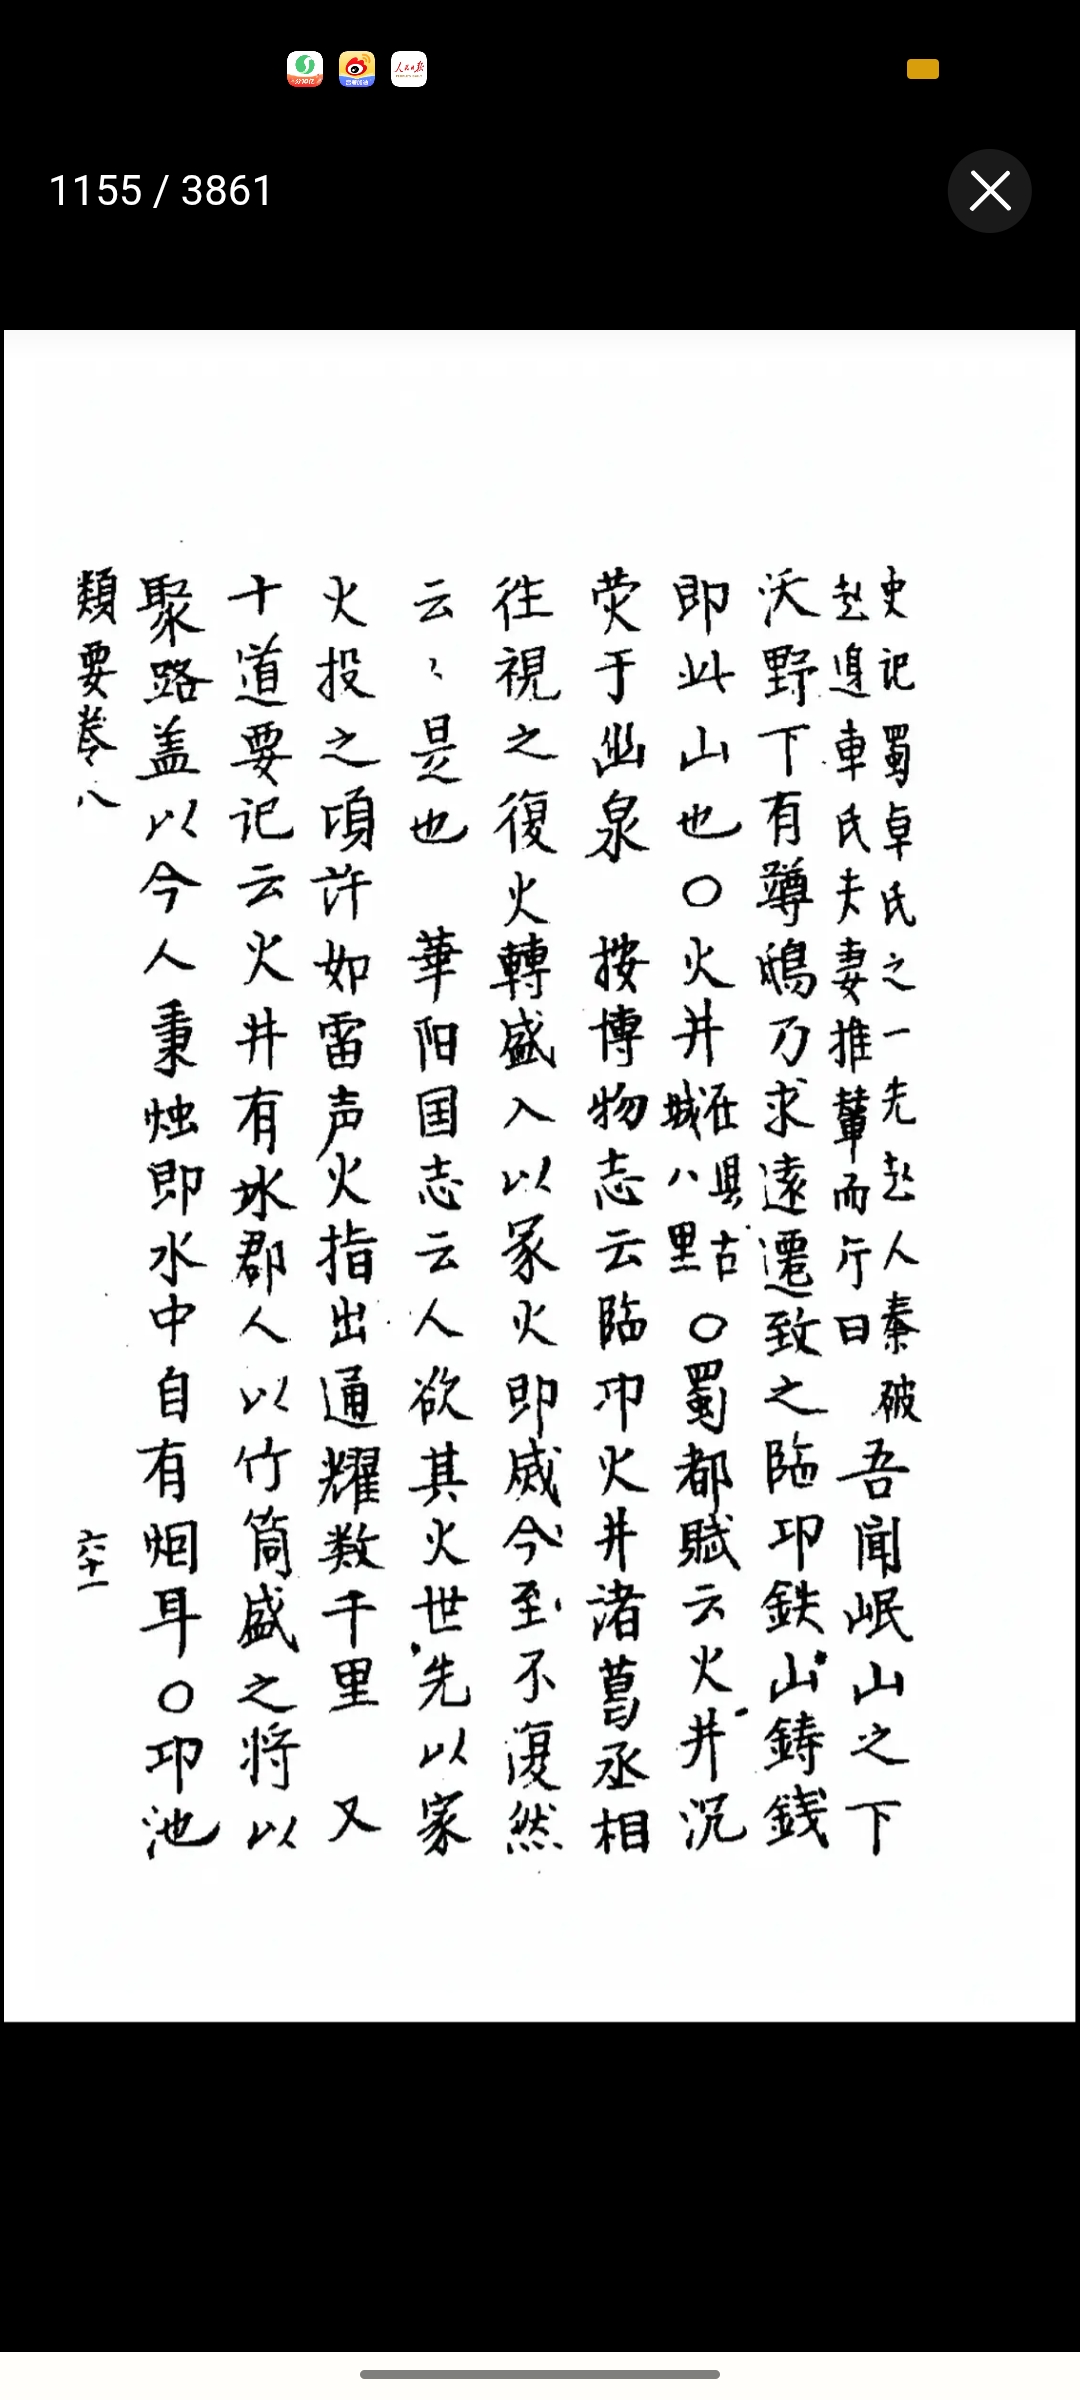 1155 / 3861
史记蜀卓氏之一先赵人秦破
赵迁車氏夫妻推輦而行曰
吾聞岷山之下
沃野下有蹲鴟乃求遠遷致之臨卭鉄山鋳銭
即此山也〇火井在县古城八里〇蜀都賦云火井沉
荧于幽泉 按博物志云臨卭火井諸葛丞相
往視之復火轉盛入以家火即威今至不復然
云〻是也 華阳国志云人欲其火世先以家
火投之頃許如雷声火指出通耀数千里 又
十道要记云火井有水郡人以竹筒盛之将以
聚路盖以今人秉烛即水中自有烟耳〇卭池
類要卷八
六十一